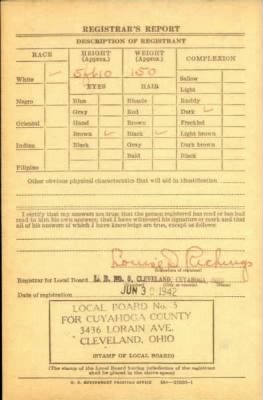 REGISTRAR'S REPORT
DESCRIPTION OF REGISTRANT
RACE HEIGHT (Approx.) WEIGHT (Approx.) COMPLEXION
White ✓ 5ft10 150 Sallow
EYES HAIR Light
Negro Blue Blonde Ruddy
Gray Red Dark ✓
Oriental Hazel Brown Freckled
Brown ✓ Black ✓ Light brown
Indian Black Gray Dark brown
Bald Black
Filipino
Other obvious physical characteristics that will aid in identification
I certify that my answers are true; that the person registered has read or has had
read to him his own answers; that I have witnessed his signature or mark and that
all of his answers of which I have knowledge are true, except as follows:
Louise D. Richings
Registrar for Local Board L. B. NO. 5, CLEVELAND, CUYAHOGA, OHIO
Date of registration JUN 30 1942
LOCAL BOARD No. 5
FOR CUYAHOGA COUNTY
3436 LORAIN AVE.
CLEVELAND, OHIO
(STAMP OF LOCAL BOARD)
(The stamp of the Local Board having jurisdiction of the registrant
shall be placed in the above space)
U. S. GOVERNMENT PRINTING OFFICE